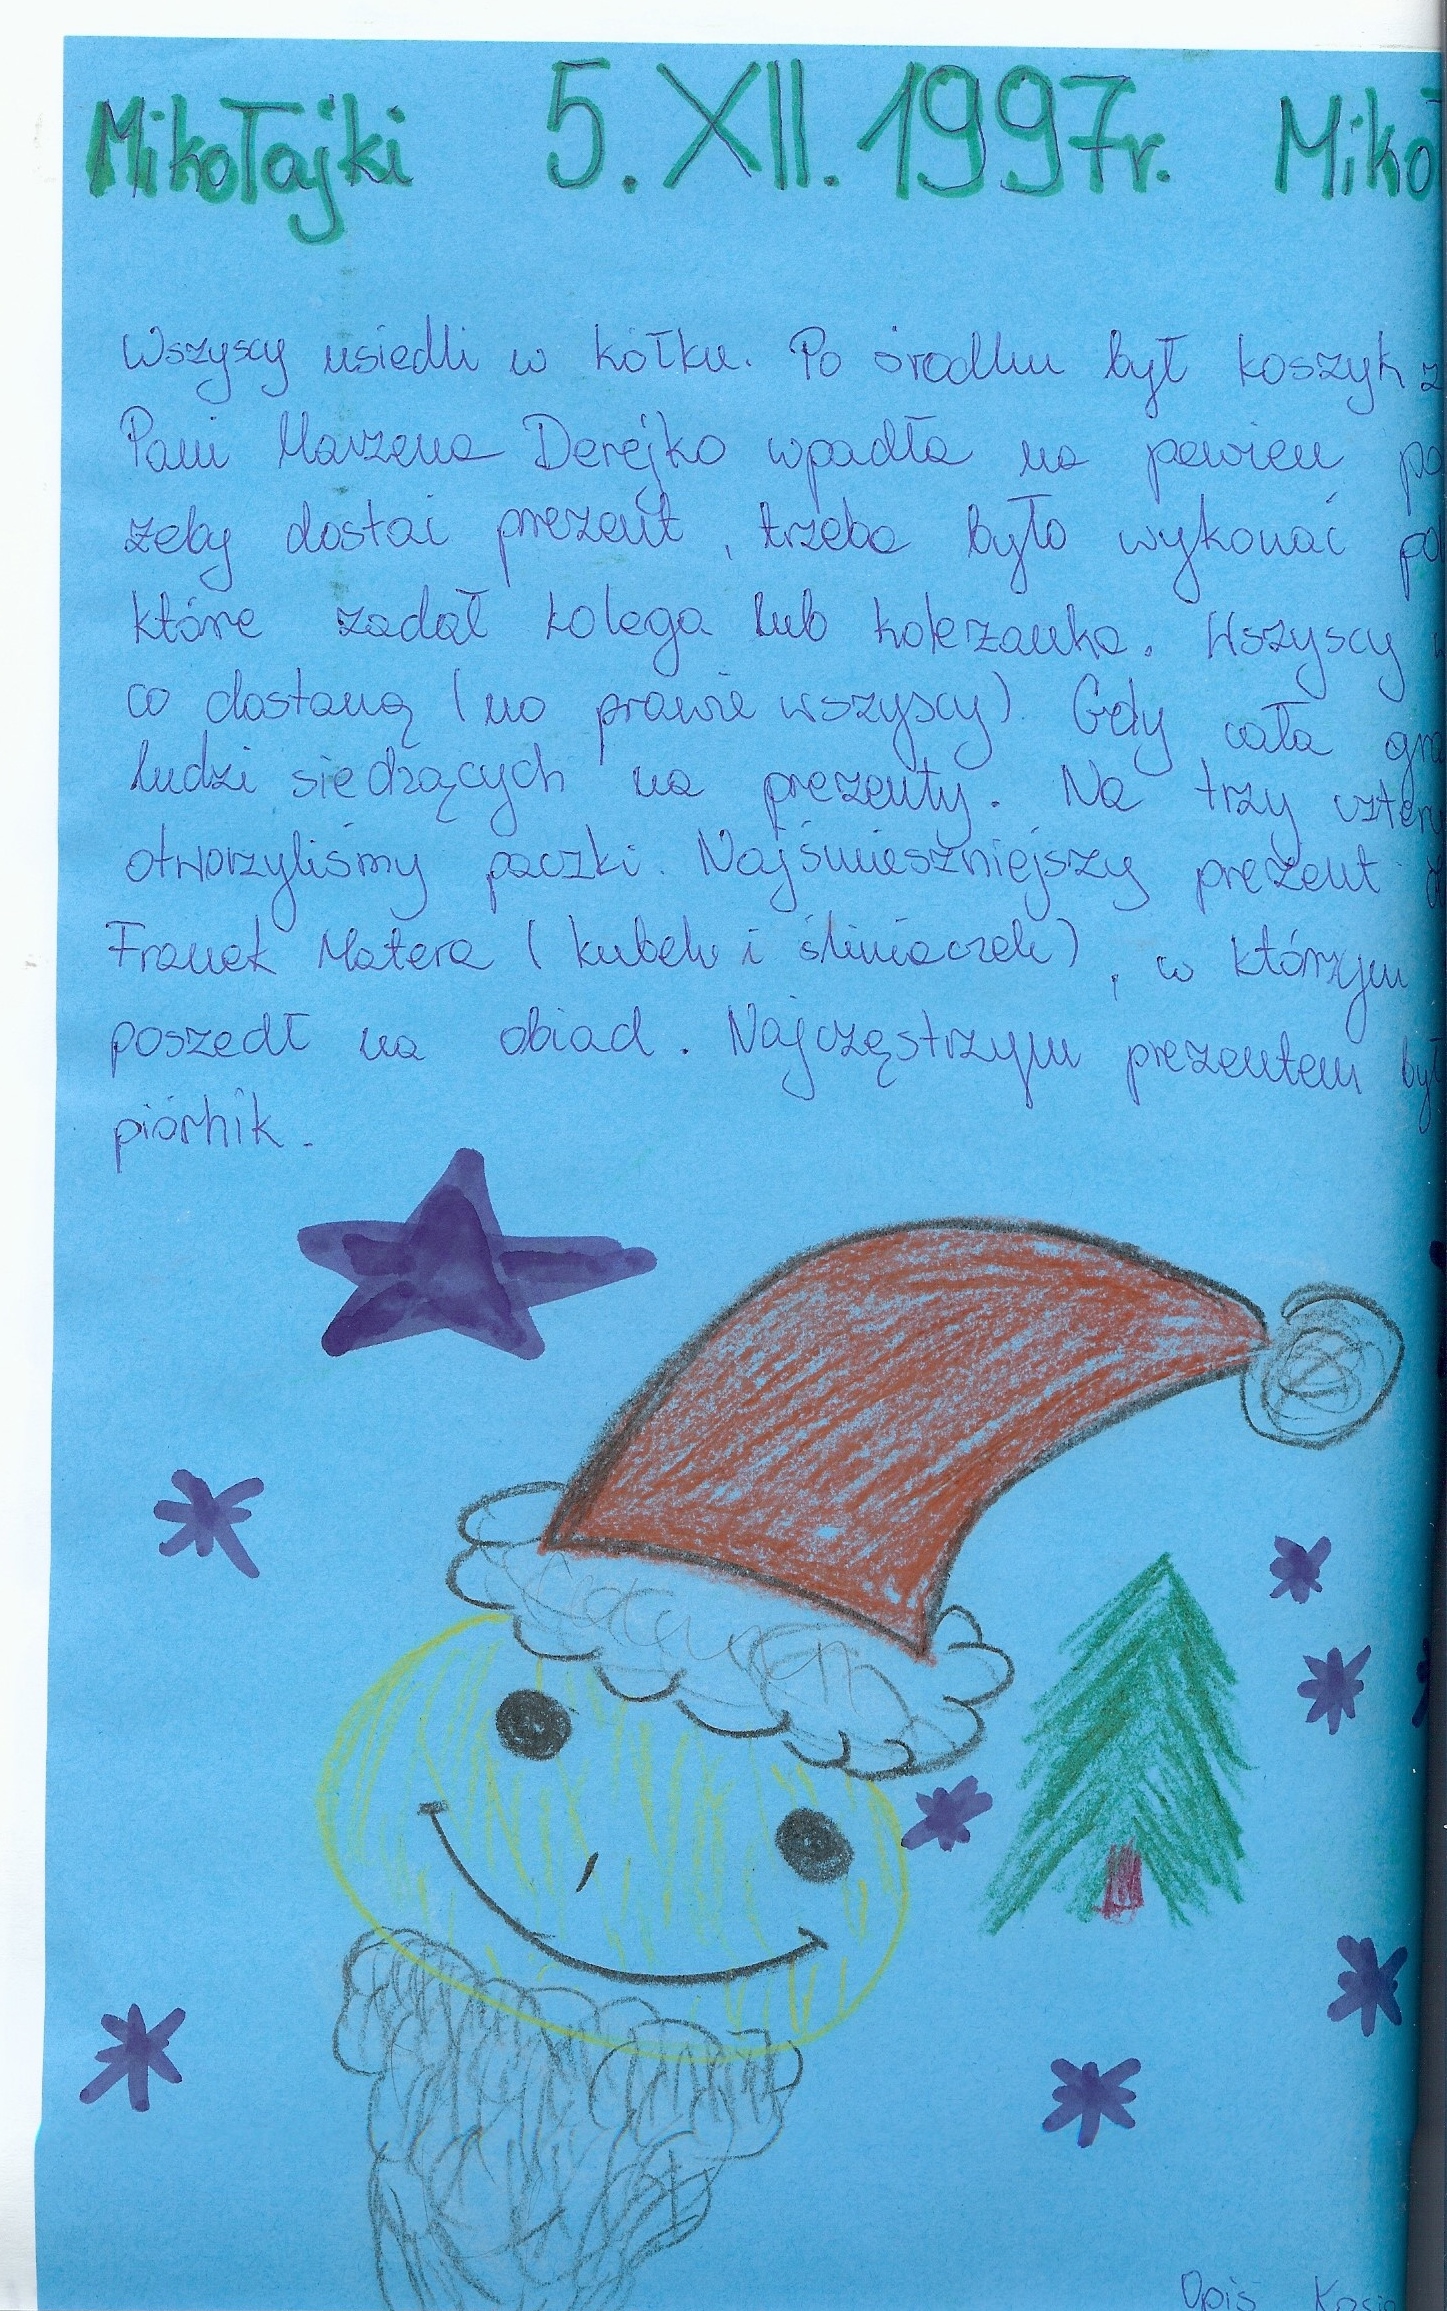 Mikołajki 5.XII.1997r. Miko
Wszyscy usiedli w kółku. Po środku był koszyk z
Pani Marzena Derejko wpadła na pewien po
żeby dostać prezent, trzeba było wykonać pol
które zadał kolega lub koleżanka. Wszyscy
co dostaną (no prawie wszyscy) Gdy cała gro
ludzi siedzących na prezenty. Na trzy cztery
otworzyliśmy paczki. Najśmieszniejszy prezent
Franek Matera (kubek i śliniaczek), w którzym
poszedł na obiad. Najczęstrzym prezentem był
piórnik.
Opis Kasia